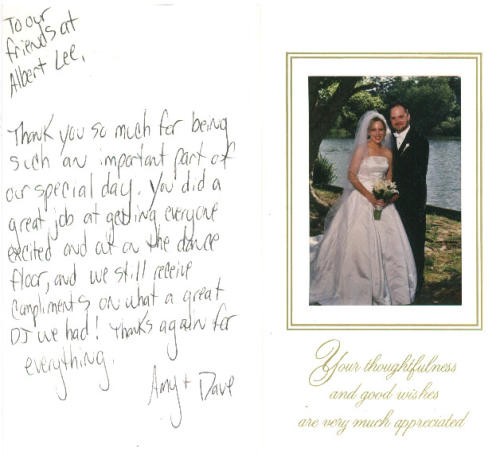 To our
friends at
Albert Lee,
Thank you so much for being
such an important part of
our special day. You did a
great job at getting everyone
excited and out on the dance
floor, and we still receive
compliments on what a great
DJ we had! Thanks again for
everything.
Amy + Dave
Your thoughtfulness
and good wishes
are very much appreciated